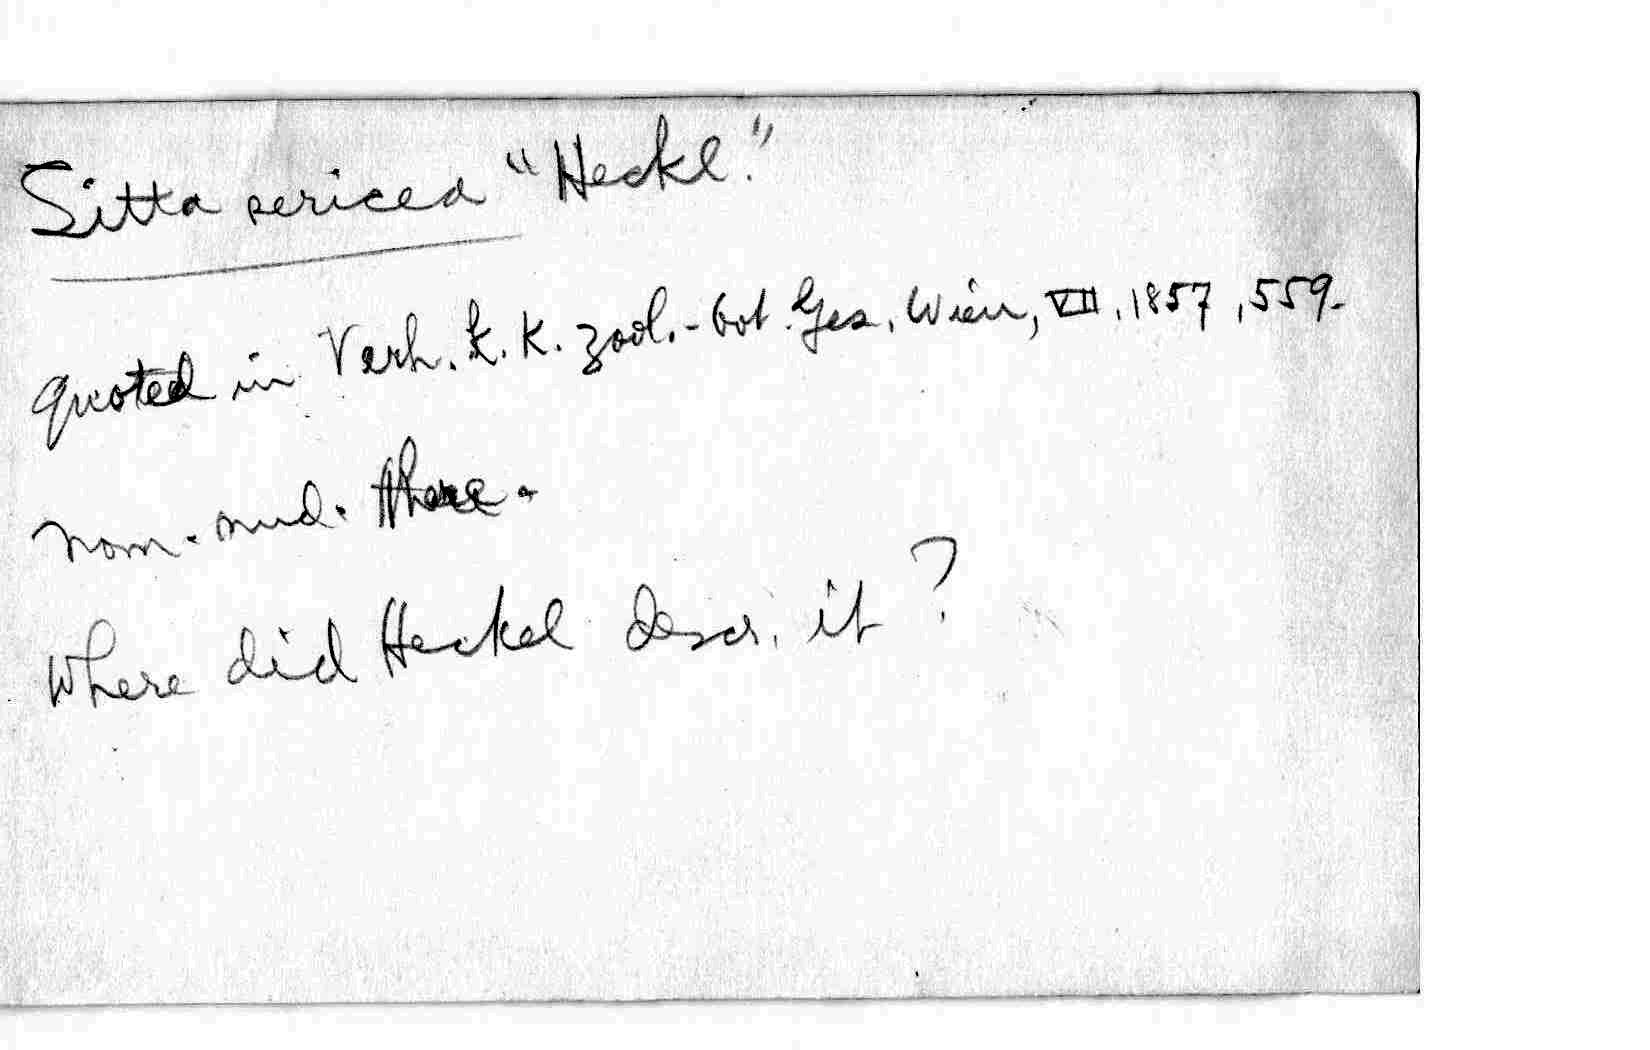 Sitta sericea "Heckl."
quoted in Verh. k. k. zool.-bot. Ges. Wien, VII, 1857, 559.
nom. nud. there.
Where did Heckel descr. it?